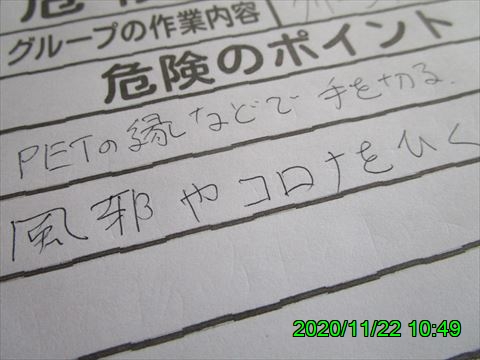 グループの作業内容
危険のポイント
PETの縁などで手を切る.
風邪やコロナをひく
2020/11/22 10:49